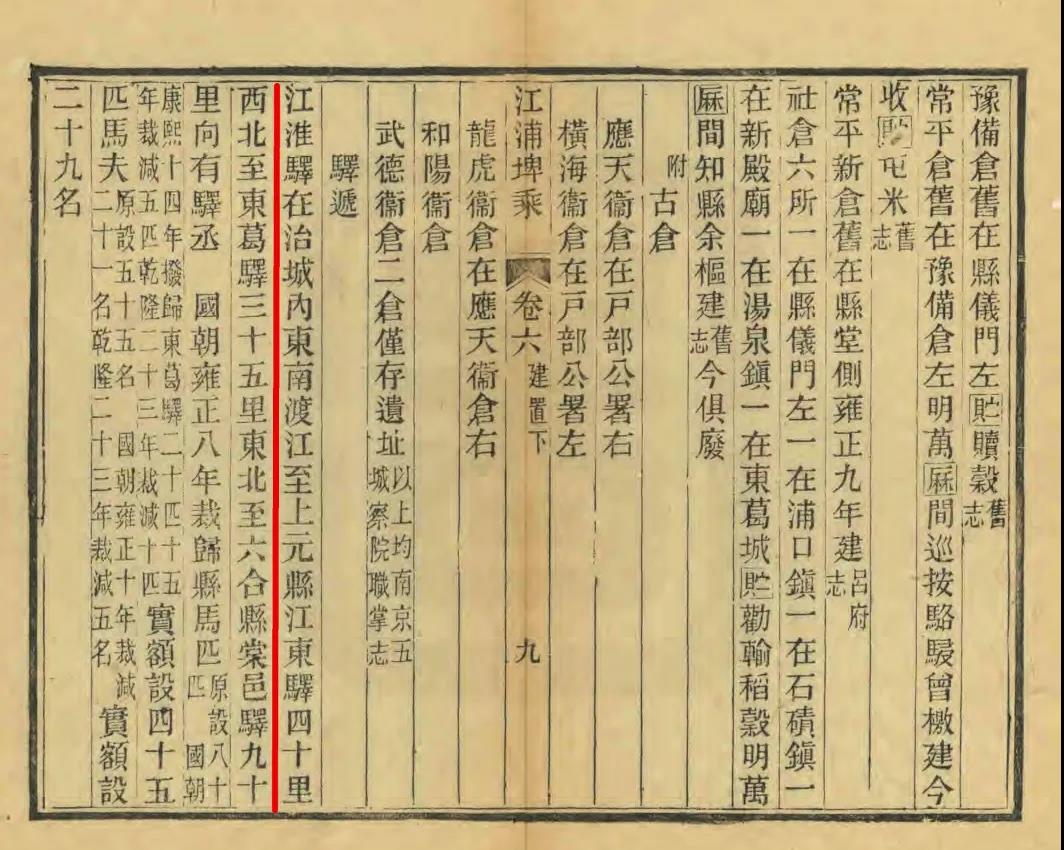 豫備倉舊在縣儀門左貯贖穀舊志
常平倉舊在豫備倉左明萬厤間巡按駱駸曾檄建今
收貯屯米舊志
常平新倉舊在縣堂側雍正九年建呂府志
社倉六所一在縣儀門左一在浦口鎮一在石磧鎮一
在新殿廟一在湯泉鎮一在東葛城貯勸輸稻穀明萬
厤間知縣余樞建舊志今俱廢
附古倉
應天衞倉在戸部公署右
橫海衞倉在戸部公署左
江浦埤乘 卷六 建置下 九
龍虎衞倉在應天衞倉右
和陽衞倉
武德衞倉二倉僅存遺址以上均南京五城察院職掌志
驛遞
江淮驛在治城內東南渡江至上元縣江東驛四十里
西北至東葛驛三十五里東北至六合縣棠邑驛九十
里向有驛丞 國朝雍正八年裁歸縣馬匹原設八十匹 國朝
康熙十四年撥歸東葛驛二十匹十五年裁減五匹乾隆二十三年裁減十匹實額設四十五
匹馬夫原設五十五名 國朝雍正十年裁減二十一名乾隆二十三年裁減五名實額設
二十九名